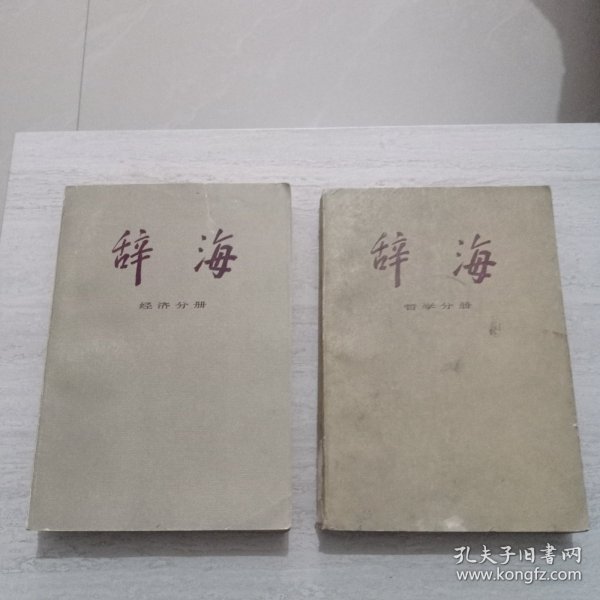 辞海
经济分册
辞海
哲学分册
孔夫子旧書网
www.kongfz.com